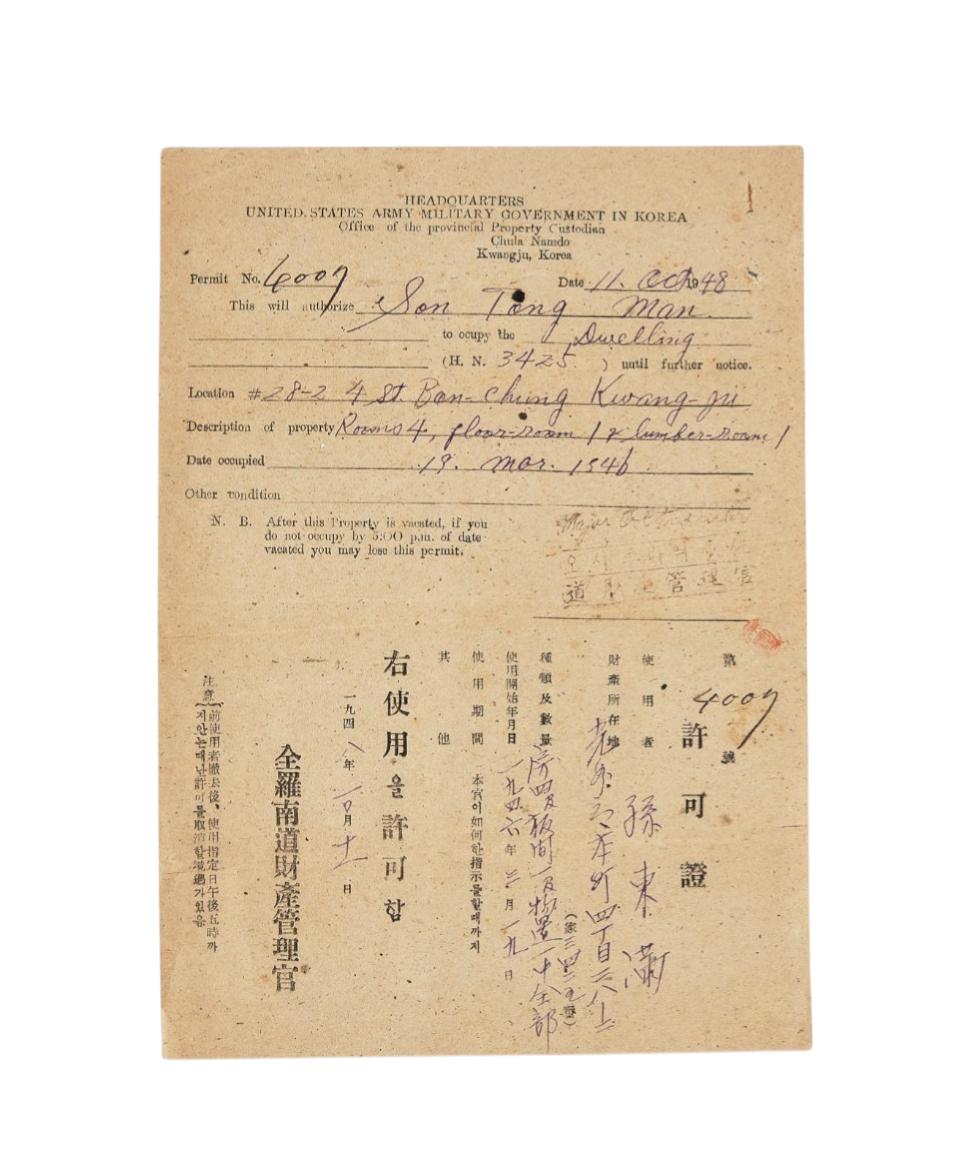 HEADQUARTERS
UNITED STATES ARMY MILITARY GOVERNMENT IN KOREA
Office of the provincial Property Custodian
Chula Namdo
Kwangju, Korea
Permit No. 4007 Date 11. Oct 1948
This will authorize Son Tong Man
to ocupy the Dwelling
(H. N. 3425 ) until further notice.
Location #28-2 4 St. Bon-Chung Kwang-ju
Description of property Rooms 4, floor-room 1 & lumber-room 1
Date occupied 19. mar. 1946
Other condition
N. B. After this Property is vacated, if you
do not occupy by 5:00 p.m. of date
vacated you may lose this permit.
道 管理官
第 4007 號
許可證
使用者 孫東
財產所在地 光州 本町四丁目二八
(家三四二五番)
種類及數量 房四及板間一及物置一 全部
使用開始年月日 一九四六年三月一九日
使用期間 本官이如何한指示를할때까지
其他
右使用을許可함
一九四八年一〇月十一日
全羅南道財產管理官
注意 前使用者撤去後、使用指定日午後五時까
지안는때난許可를取消할境遇가있음